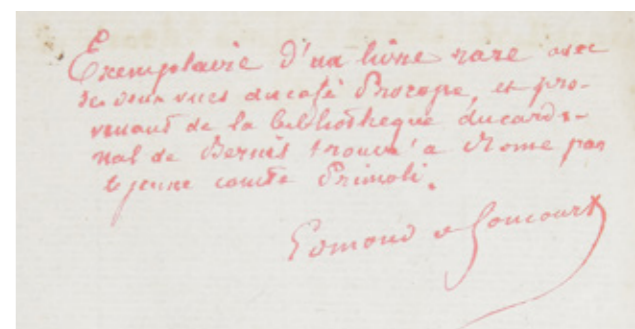 Exemplaire d'un livre rare avec
ses deux vues du café Procope, et pro-
venant de la bibliothèque du cardi-
nal de Bernis trouvé à Rome par
le jeune comte Primoli.
Edmond de Goncourt